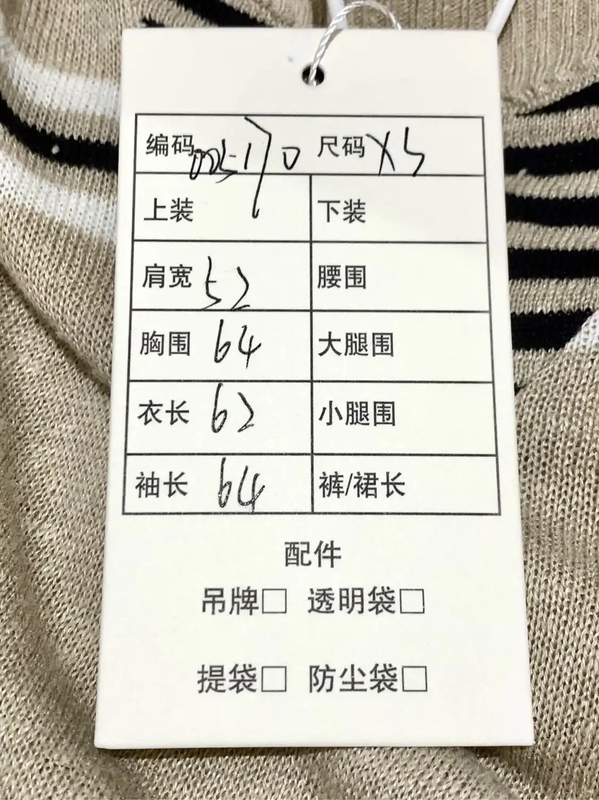 编码 005170 尺码 XS
上装 下装
肩宽 52 腰围
胸围 64 大腿围
衣长 62 小腿围
袖长 64 裤/裙长
配件
吊牌□ 透明袋□
提袋□ 防尘袋□